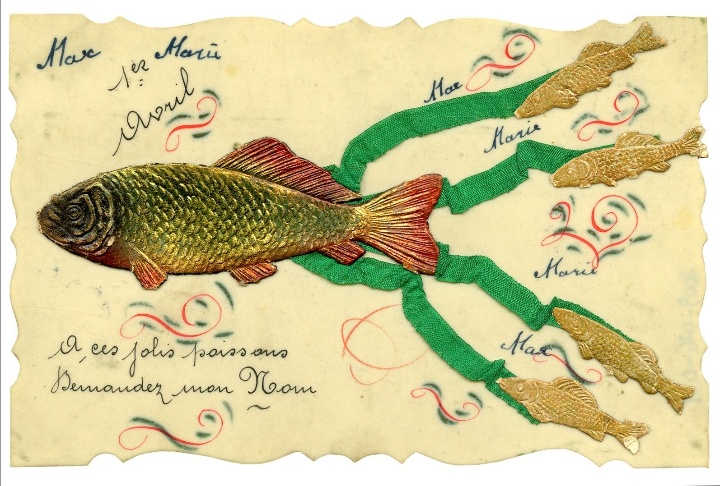 Max Marie
1er
Avril
Max
Marie
Marie
Max
A ces jolis poissons
Demandez mon Nom